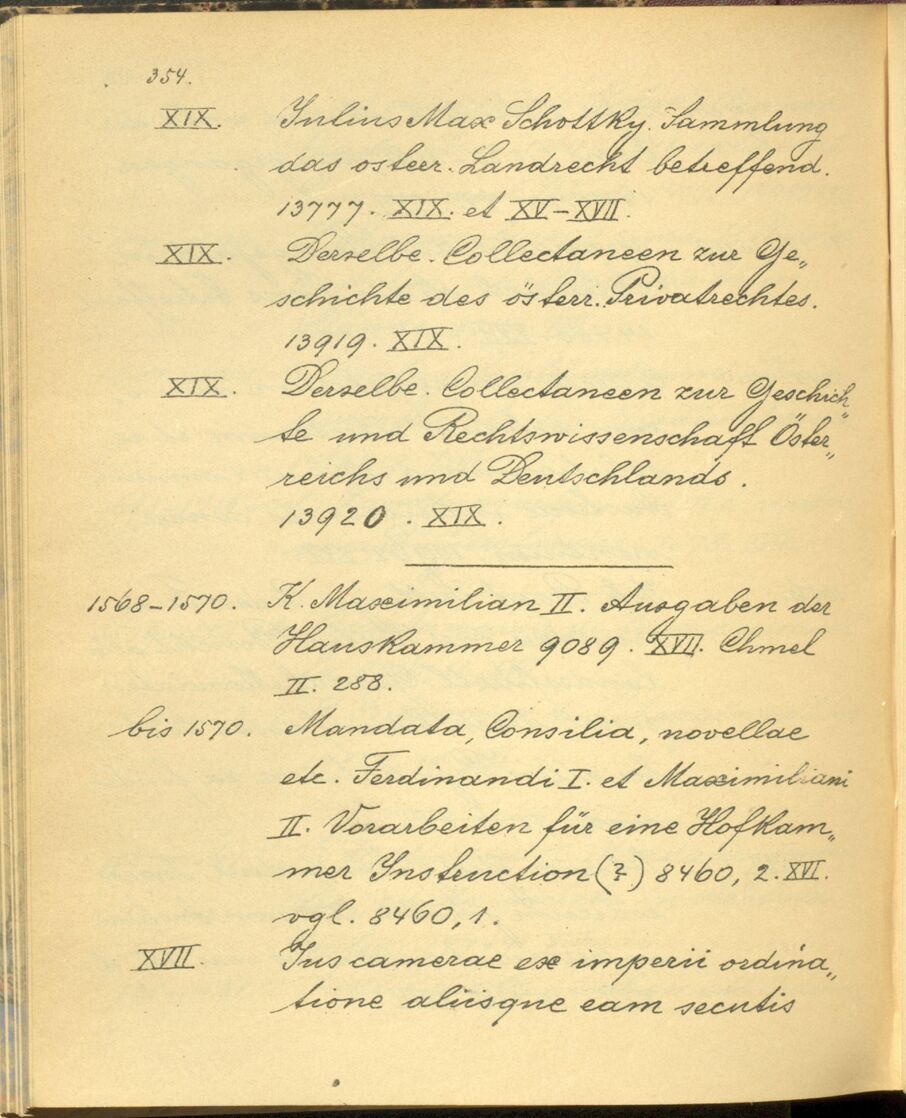 354.
XIX. Julius Max Schottky. Sammlung
das osterr. Landrecht betreffend.
13777. XIX. et XV-XVII.
XIX. Derselbe. Collectaneen zur Ge„
schichte des österr. Privatrechtes.
13919. XIX.
XIX. Derselbe. Collectaneen zur Geschich„
te und Rechtswissenschaft Öster„
reichs und Deutschlands.
13920. XIX.
1568-1570. K. Maximilian II. Ausgaben der
Hauskammer 9089. XVI. Chmel
II. 288.
bis 1570. Mandata, Consilia, novellae
etc. Ferdinandi I. et Maximiliani
II. Vorarbeiten für eine Hofkam„
mer Instruction (?) 8460, 2. XVI.
vgl. 8460, 1.
XVII. Jus camerae ex imperii ordina„
tione aliisque eam secutis